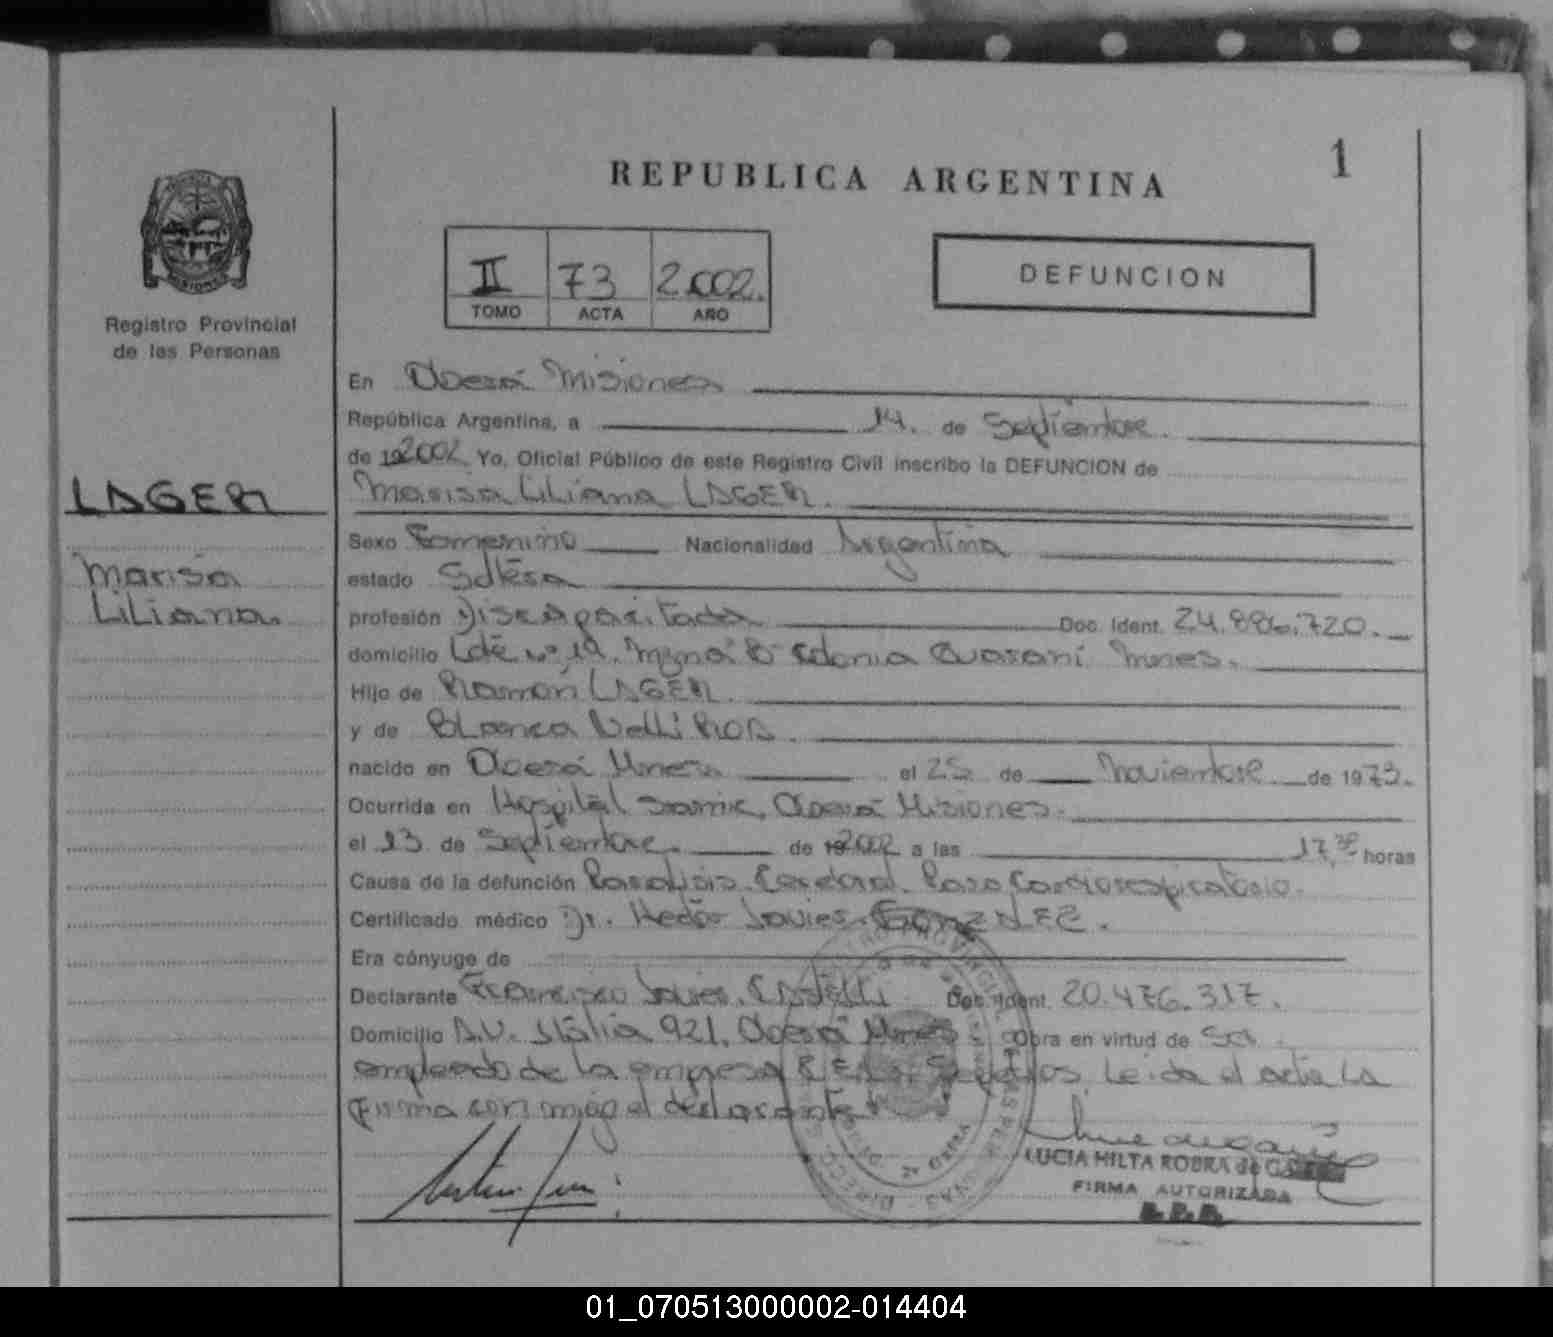 1
REPUBLICA ARGENTINA
II 73 2.002.
TOMO ACTA AÑO
DEFUNCION
Registro Provincial
de las Personas
LAGER
Marisa
Liliana.
En Oberá Misiones
República Argentina, a 14. de Septiembre.
de 19 2002 Yo, Oficial Público de este Registro Civil inscribo la DEFUNCION de
Marisa Liliana LAGER.
Sexo Femenino Nacionalidad Argentina
estado Soltera
profesión Discapacitada Doc. Ident. 24.886.720.
domicilio Lote Nº 19. Colonia Guaraní Mnes.
Hijo de Ramón LAGER.
y de Blanca Nelli
nacido en Oberá Mnes. el 25 de Noviembre de 1975.
Ocurrida en Hospital Samic, Oberá Misiones.
el 13 de Septiembre. de 19 2002 a las 17,30 horas
Causa de la defunción Paralisis Cerebral. Paro Cardiorespiratorio.
Certificado médico Dr. Hector Javier GONZALEZ.
Era cónyuge de
Declarante Francisco Javier Doc. Ident. 20.476.317.
Domicilio A.V. Italia 921. Oberá Mnes obra en virtud de Ser
empleado de la empresa Leida el acta La
firma con migo el declarante
LUCIA HILTA ROBRA de
FIRMA AUTORIZADA
01_070513000002-014404